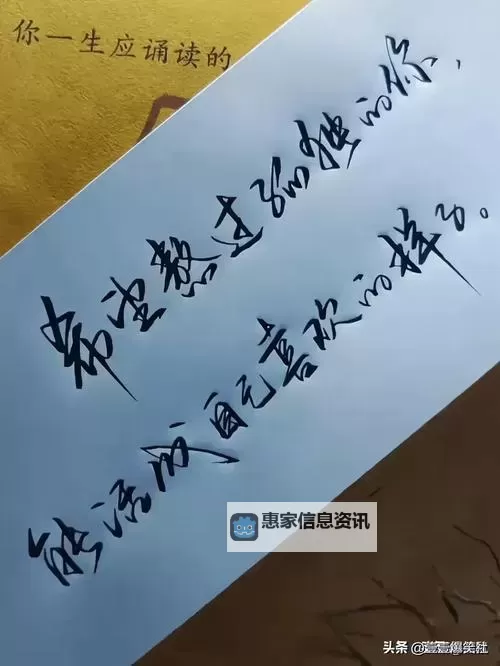 你一生应诵读的
希望熬过孤独的你、
能活成自己喜欢的样子。
惠家信息资讯
头条 @壹壹爆笑社